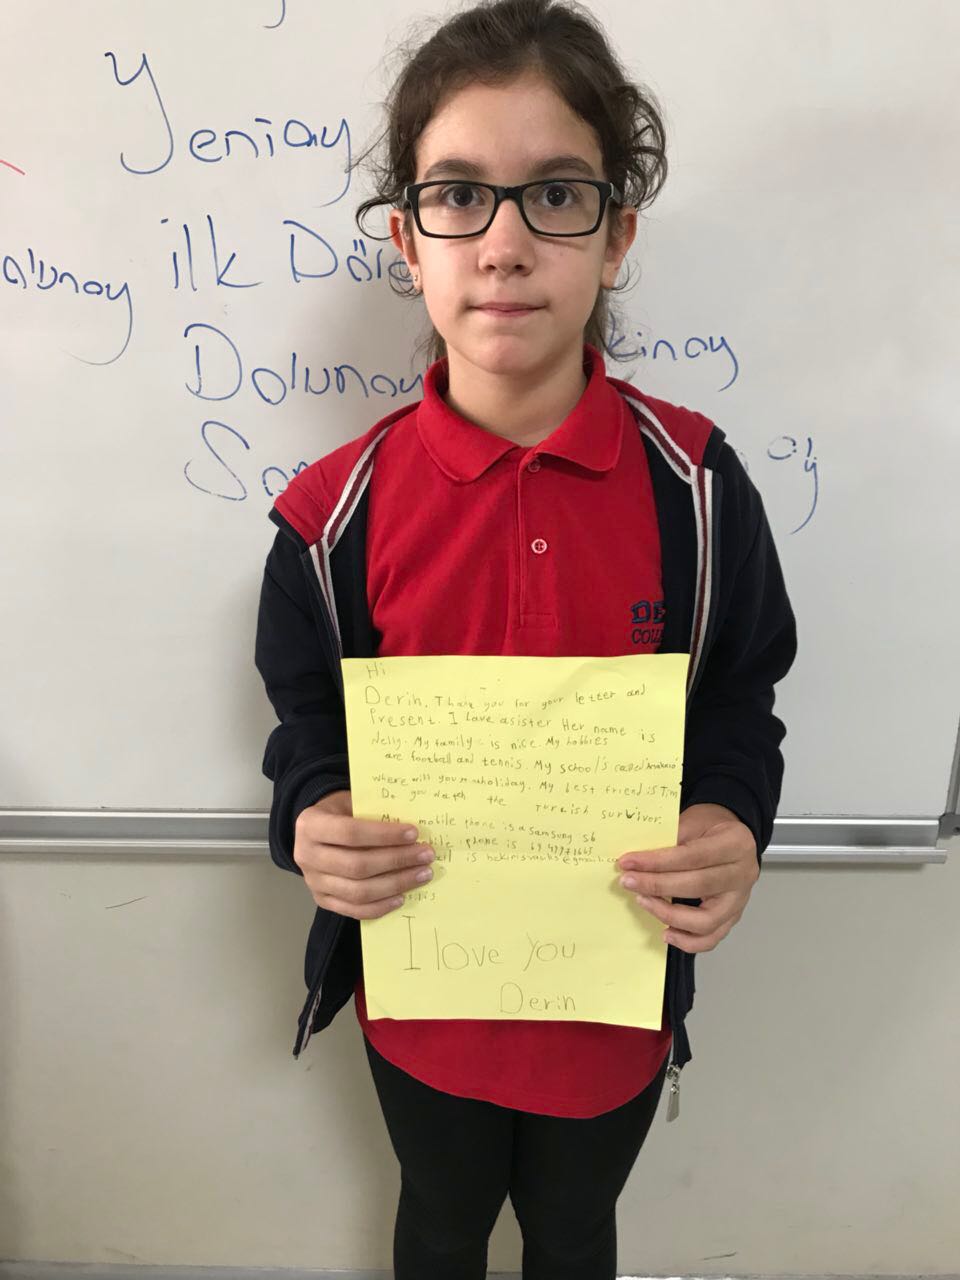 Y
Yeniay
ilk Dör
alunay
Dolunay
kinay
Son
ay
DE
COLL
Hi
Derin. Thank you for your letter and
Present. I have asister Her name is
Nelly. My family is nice. My hobbies
are football and tennis. My school's called
where will you holiday. My best friend is Tim
Do you watch the Turkish survivor.
My mobile phone is a samsung s6
phone is
is @gmail.co
I love you
Derin